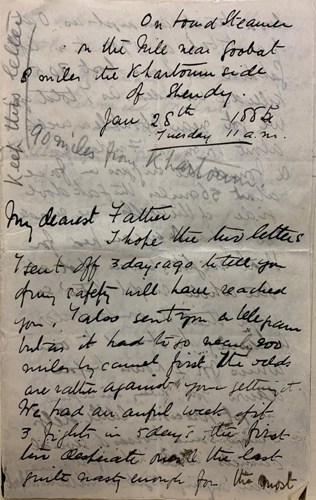 On board Steamer
on the Nile near Goobat
8 miles the Khartoum side
of Shendy.
Jan 28th 1885
Tuesday 11 a.m.
Keep this letter
90 miles from Khartoum
My dearest Father
I hope the two letters
I sent off 3 days ago to tell you
of my safety will have reached
you, I also sent you a telegram
but as it had to go near 200
miles by camel first the odds
are rather against your getting it.
We had an awful week of it
3 fights in 5 days, the first
two desperate ones & the last
quite nasty enough for the most